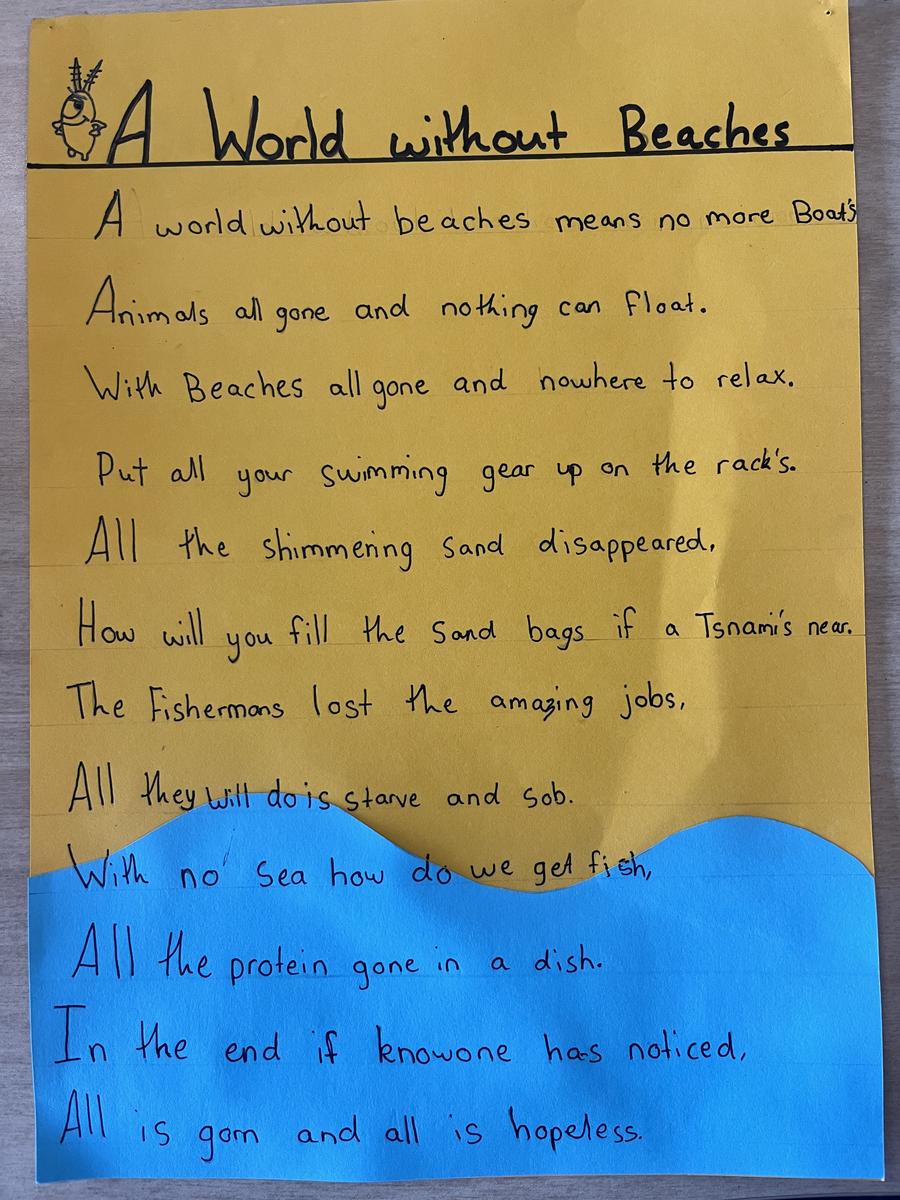 A World without Beaches
A world without beaches means no more Boat's
Animals all gone and nothing can float.
With Beaches all gone and nowhere to relax.
Put all your swimming gear up on the rack's.
All the shimmering sand disappeared,
How will you fill the sand bags if a Tsnami's near.
The Fishermans lost the amazing jobs,
All they will do is starve and sob.
With no sea how do we get fish,
All the protein gone in a dish.
In the end if knowone has noticed,
All is gorn and all is hopeless.